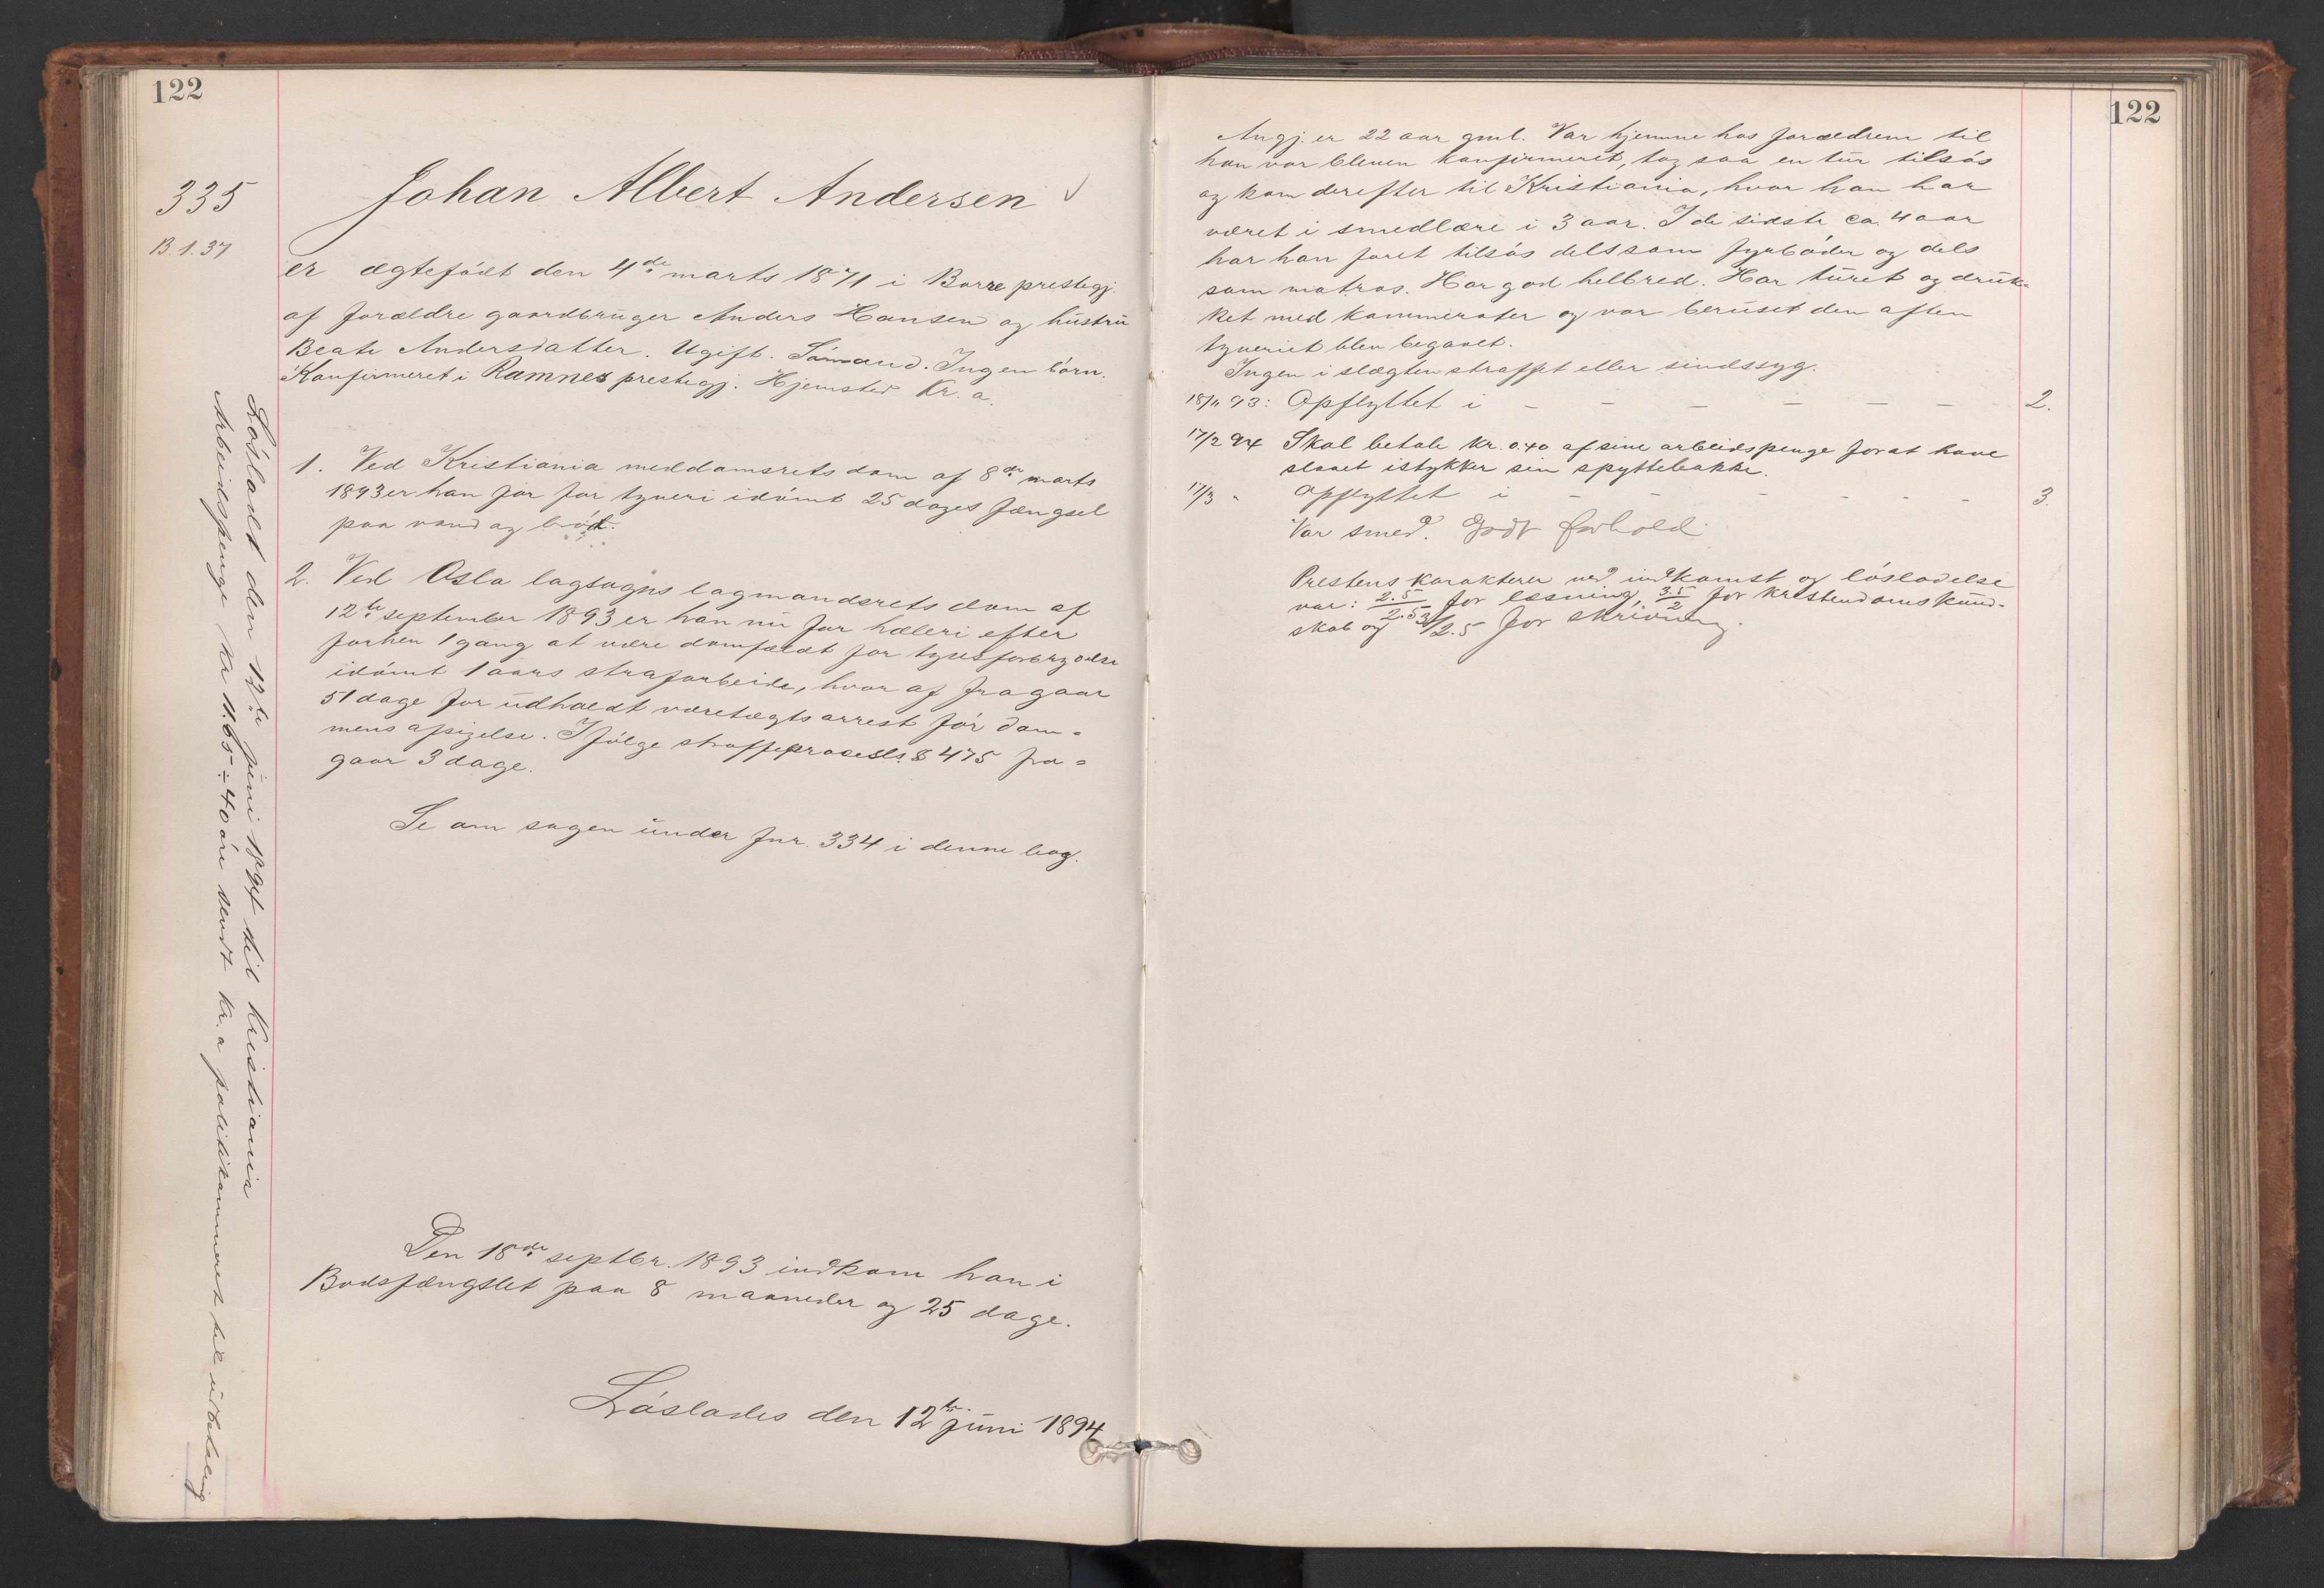 122
335
B.1.37
Johan Albert Andersen
er ægtefödt den 4de marts 1871 i Borre prestegj.
af forældre gaardbruger Anders Hansen og hustru
Beate Andersdatter. Ugift. Sömand. Ingen börn.
Konfirmeret i Ramnes prestegj. Hjemsted Kr.a.
1. Ved Kristiania meddomsrets dom af 8de marts
1893 er han för for tyveri idömt 25 dages fængsel
paa vand og bröd.
2. Ved Oslo lagsogns lagmandsrets dom af
12te september 1893 er han nu for hæleri efter
forhen 1 gang at være domfældt for tyvsforbrydelse
idömt 1 aars strafarbeide, hvor af fragaar
51 dage for udholdt varetægtsarrest för dom-
mens afsigelse. Ifölge straffeprocessls. § 475 fra-
gaar 3 dage.
Se om sagen under fnr. 334 i denne bog.
Den 18de septbr. 1893 indkom han i
Bodsfængslet paa 8 maaneder og 25 dage.
Löslades den 12te juni 1894
Lösladt den 12te juni 1894 til Kristiania
Arbeidspenge kr 11.65 ÷ 40 öre sendt Kr.a politikammeret til udbetaling
122
Angj. er 22 aar gml. Var hjemme hos forældrene til
han var bleven konfirmeret, tog saa en tur tilsös
og kom derefter til Kristiania, hvor han har
været i smedlære i 3 aar. I de sidste ca. 4 aar
har han faret tilsös dels som fyrböder og dels
som matros. Har god helbred. Har turet og druk-
ket med kammerater og var beruset den aften
tyveriet blev begaaet.
Ingen i slægten straffet eller sindssyg.
18/11 93: Opflyttet i - - - - - - 2.
17/2 94 Skal betale kr. 0.40 af sine arbeidspenge for at have
slaaet istykker sin spyttebakke.
17/3 " Opflyttet i - - - - - - 3.
Var smed. Godt forhold.
Prestens karakterer ved indkomst og lösladelse
var: 2.5/2.5 for læsning, 3.5/2 for kristendomskund-
skab og 3/2.5 for skrivning.